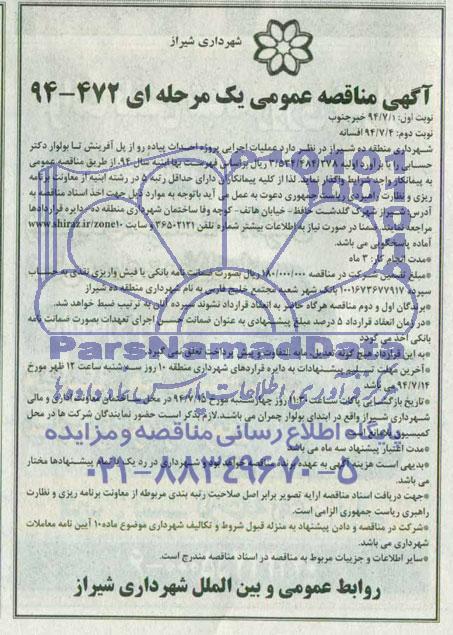 شهرداری شیراز
آگهی مناقصه عمومی یک مرحله ای ۴۷۲-۹۴
نوبت اول: ۹۴/۷/۱ خبرجنوب
نوبت دوم: ۹۴/۷/۴ افسانه
شهرداری منطقه ده شیراز در نظر دارد عملیات اجرایی پروژه احداث پیاده رو از پل آفرینش تا بولوار دکتر
حسابی را با برآورد اولیه ۳/۵۳۴/۶۸۴/۳۷۸ ریال براساس فهرست بها ابنیه سال ۹۴ از طریق مناقصه عمومی
به پیمانکار واجد شرایط واگذار نماید. لذا از کلیه پیمانکاران دارای حداقل رتبه ۵ در رشته ابنیه از معاونت برنامه
ریزی و نظارت راهبردی ریاست جمهوری دعوت به عمل می آید باتوجه به موارد ذیل جهت اخذ اسناد مناقصه به
آدرس: شیراز شهرک گلدشت حافظ- خیابان هاتف- کوچه وفا ساختمان شهرداری منطقه ده- دایره قراردادها
مراجعه نمایند. ضمنا در صورت نیاز به اطلاعات بیشتر شماره تلفن ۳۶۵۰۲۱۲۱ و سایت www.shiraz.ir/zone10
آماده پاسخگویی می باشد.
*مدت انجام کار: ۳ ماه
*مبلغ تضمین شرکت در مناقصه ۱۸۰/۰۰۰/۰۰۰ ریال بصورت ضمانت نامه بانکی یا فیش واریزی نقدی به حساب
سپرده ۱۰۰۱۶۷۳۶۷۷۹۱۷ بانک شهر شعبه مجتمع خلیج فارس به نام شهرداری منطقه ده شیراز
*برندگان اول و دوم مناقصه هرگاه حاضر به انعقاد قرارداد نشوند سپرده آنان به ترتیب ضبط خواهد شد.
*در زمان انعقاد قرارداد ۵ درصد مبلغ پیشنهادی به عنوان ضمانت حسن اجرای تعهدات بصورت ضمانت نامه
بانکی اخذ می گردد
*به این قرارداد هیچ گونه تعدیل، مابه التفاوت و پیش پرداخت تعلق نمی گیرد.
*آخرین مهلت تسلیم پیشنهادات به دایره قراردادهای شهرداری منطقه ۱۰ روز سه‌شنبه ساعت ۱۲ ظهر مورخ
۹۴/۷/۱۴ می باشد
*تاریخ بازگشایی پاکت ها ساعت ۱۱:۳۰ روز چهارشنبه مورخ ۹۴/۷/۱۵ در محل ساختمان معاونت اداری و مالی
شهرداری شیراز واقع در ابتدای بولوار چمران می باشد. لازم بذکر است حضور نمایندگان شرکت ها در محل
کمیسیون بلامانع است
*مدت اعتبار پیشنهاد سه ماه می باشد
*بدیهی است هزینه آگهی به عهده برنده مناقصه خواهد بود و شهرداری در رد یک یا تمام پیشنهادها مختار
می باشد.
*جهت دریافت اسناد مناقصه ارایه تصویر برابر اصل صلاحیت رتبه بندی مربوطه از معاونت برنامه ریزی و نظارت
راهبری ریاست جمهوری الزامی است.
*شرکت در مناقصه و دادن پیشنهاد به منزله قبول شروط و تکالیف شهرداری موضوع ماده ۱۰ آیین نامه معاملات
شهرداری می باشد.
*سایر اطلاعات و جزییات مربوط به مناقصه در اسناد مناقصه مندرج است.
روابط عمومی و بین الملل شهرداری شیراز
ParsNamadData
مرکز فرآوری اطلاعات پارس نماد داده ها
پایگاه اطلاع رسانی مناقصه و مزایده
۰۲۱-۸۸۳۴۹۶۷۰-۵